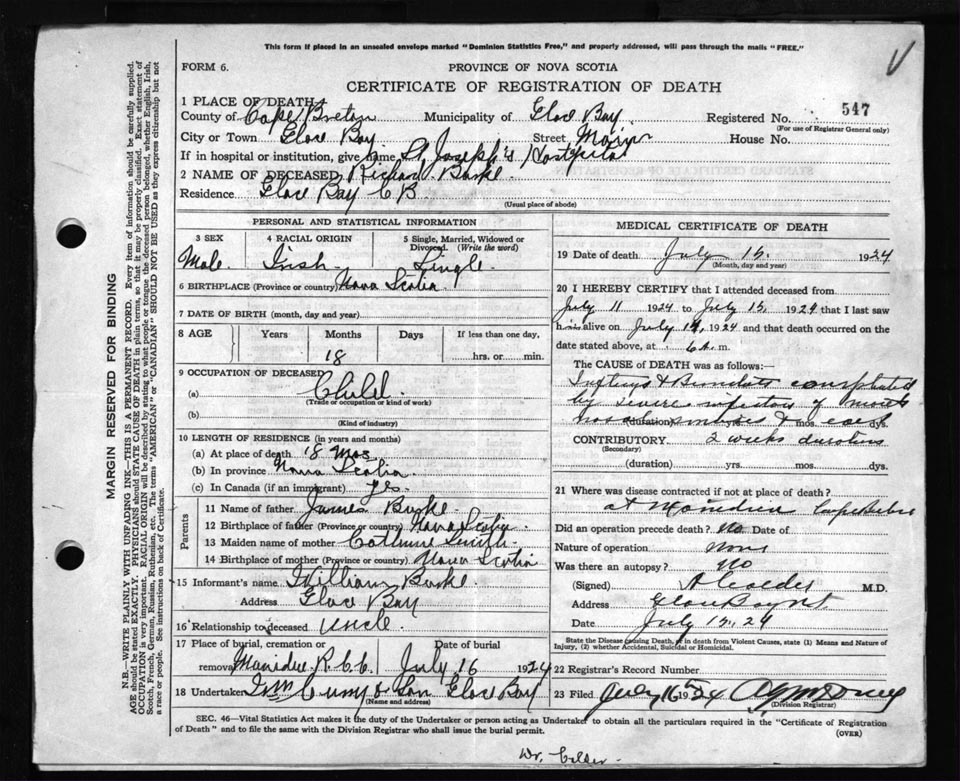 This form if placed in an unsealed envelope marked "Dominion Statistics Free," and properly addressed, will pass through the mails "FREE."
FORM 6. PROVINCE OF NOVA SCOTIA
CERTIFICATE OF REGISTRATION OF DEATH
1 PLACE OF DEATH
County of Cape Breton Municipality of Glace Bay Registered No. 547
(For use of Registrar General only)
City or Town Glace Bay Street Main House No.
If in hospital or institution, give name St Joseph's Hospital
2 NAME OF DECEASED Richard Burke
Residence Glace Bay C B
(Usual place of abode)
PERSONAL AND STATISTICAL INFORMATION
3 SEX 4 RACIAL ORIGIN 5 Single, Married, Widowed or Divorced. (Write the word)
Male Irish Single
6 BIRTHPLACE (Province or country) Nova Scotia
7 DATE OF BIRTH (month, day and year)
8 AGE Years Months Days If less than one day,
18 hrs. or min.
9 OCCUPATION OF DECEASED
(a) Child
(Trade or occupation or kind of work)
(b)
(Kind of industry)
10 LENGTH OF RESIDENCE (in years and months)
(a) At place of death 18 Mos
(b) In province Nova Scotia
(c) In Canada (if an immigrant) yes
Parents
11 Name of father James Burke
12 Birthplace of father (Province or country) Nova Scotia
13 Maiden name of mother Catherine Smith
14 Birthplace of mother (Province or country) Nova Scotia
15 Informant's name William Burke
Address Glace Bay
16 Relationship to deceased uncle
17 Place of burial, cremation or removal R.C.C. Date of burial July 16 1924
18 Undertaker & Son Glace Bay
(Name and address)
MEDICAL CERTIFICATE OF DEATH
19 Date of death July 15. 1924
(Month, day and year)
20 I HEREBY CERTIFY that I attended deceased from
July 11 1924 to July 15, 1924 that I last saw
him alive on July 14, 1924 and that death occurred on
date stated above, at 6 a.m.
The CAUSE of DEATH was as follows:—
complicated
by severe infection of mouth
(duration) mos. dys.
CONTRIBUTORY 2 weeks duration
(Secondary)
(duration) yrs. mos. dys.
21 Where was disease contracted if not at place of death?
at
Did an operation precede death? No Date of
Nature of operation none
Was there an autopsy? no
(Signed) M.D.
Address Glace Bay NS
Date July 15. 24
State the Disease causing Death, or in death from Violent Causes, state (1) Means and Nature of Injury, (2) whether Accidental, Suicidal or Homicidal.
22 Registrar's Record Number
23 Filed July 16 1924
(Division Registrar)
SEC. 46—Vital Statistics Act makes it the duty of the Undertaker or person acting as Undertaker to obtain all the particulars required in the "Certificate of Registration
of Death" and to file the same with the Division Registrar who shall issue the burial permit. (OVER)
Dr. Calder
MARGIN RESERVED FOR BINDING
N.B.—WRITE PLAINLY WITH UNFADING INK—THIS IS A PERMANENT RECORD. Every item of information should be carefully supplied.
AGE should be stated EXACTLY. PHYSICIANS should STATE CAUSE OF DEATH in plain terms, so that it may be properly classified. Exact statement of
OCCUPATION is very important. RACIAL ORIGIN will be described by stating to what people or tongue the deceased person belonged, whether English, Irish,
Scotch, French, German, Russian, Ruthenian, etc. The terms "AMERICAN" or "CANADIAN" SHOULD NOT BE USED as they express citizenship but not
a race or people. See instructions on back of Certificate.